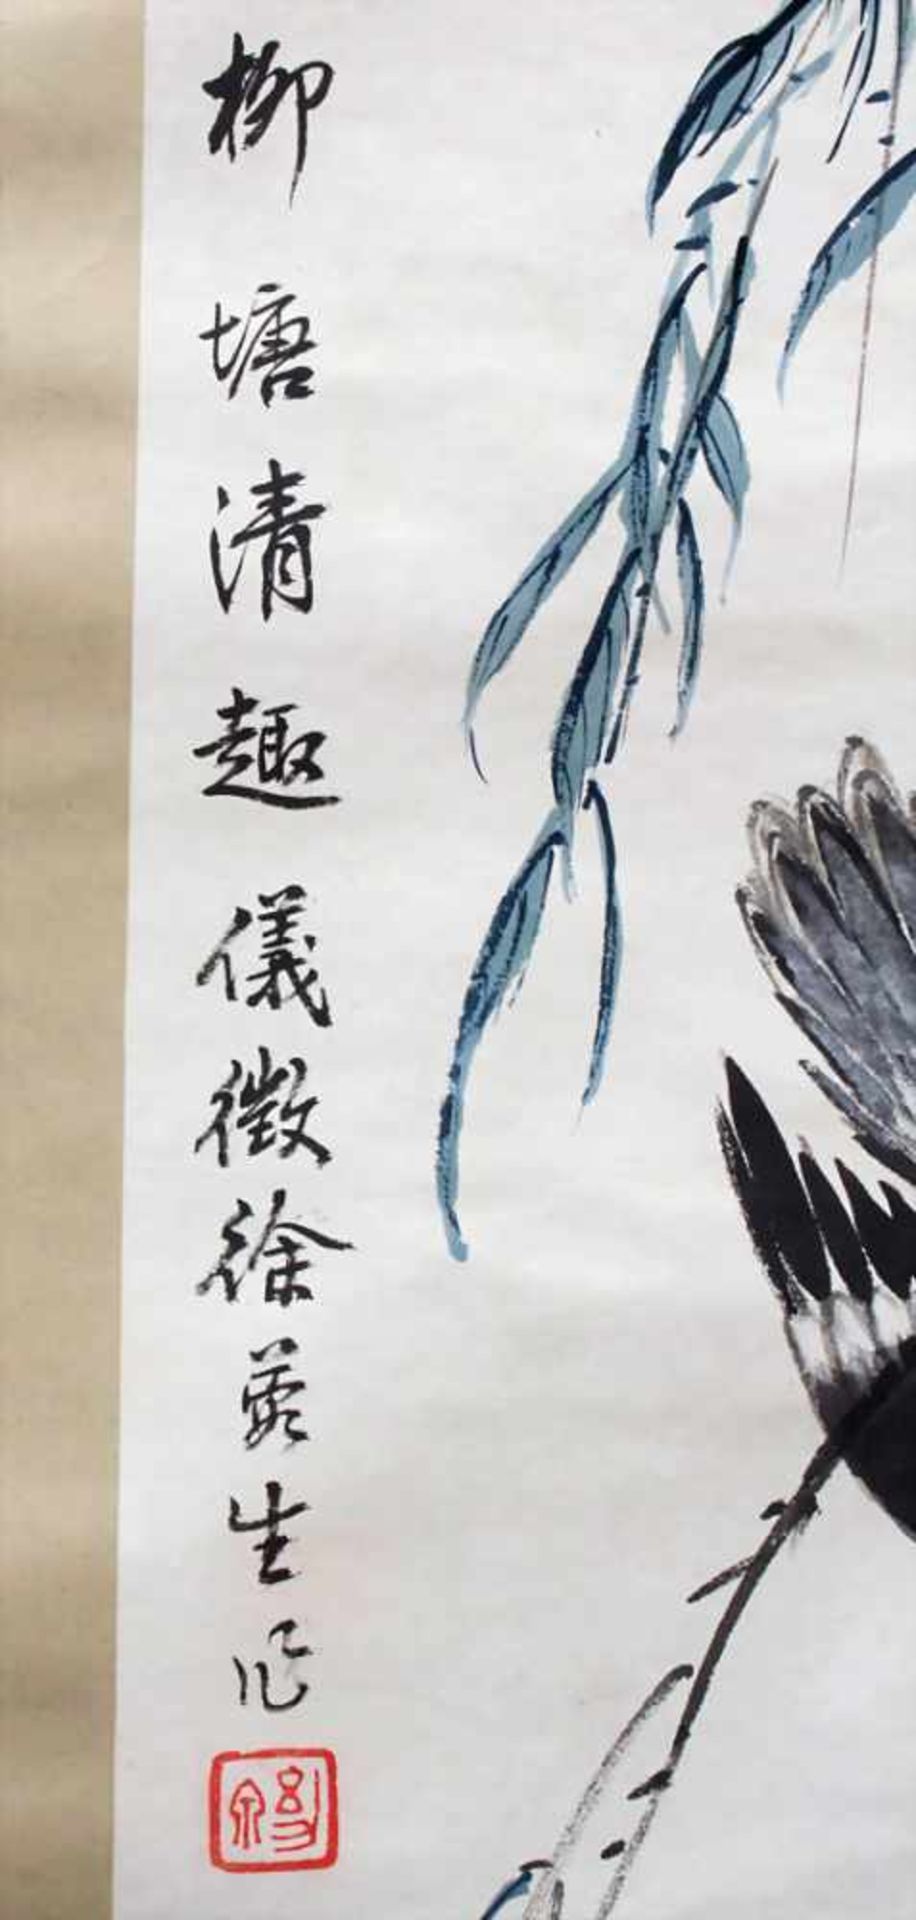 柳塘清趣儀徵徐芸生作